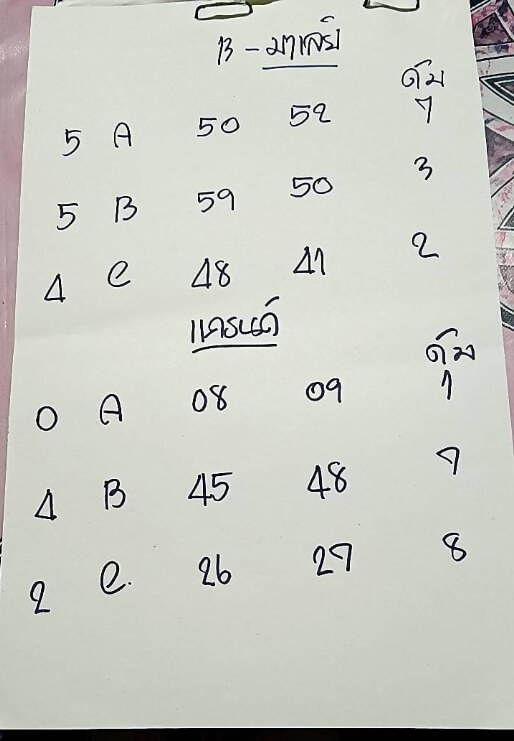 B - มาเลย์
ดับ
5 A 50 52 7
5 B 59 50 3
4 C 48 41 2
แกรนด์
ดับ
0 A 08 09 1
4 B 45 48 7
2 C. 26 27 8